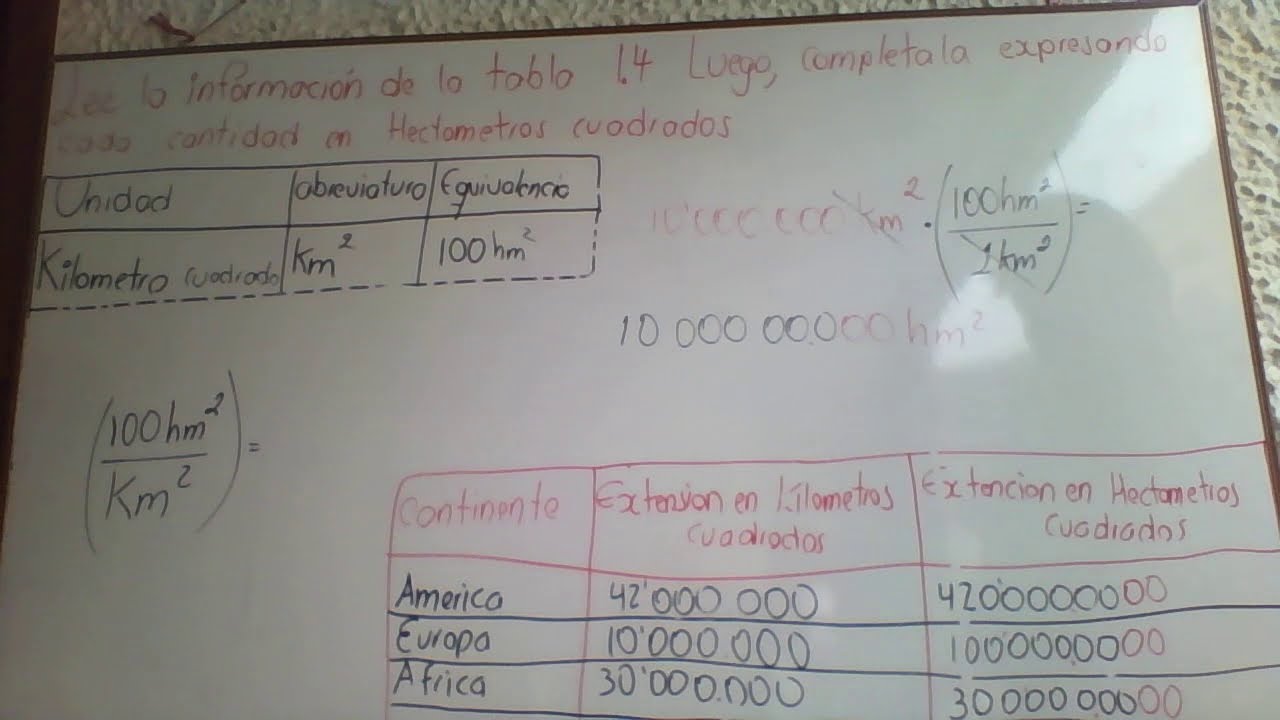 Lee la información de la tabla 1.4 Luego, completala expresando
cada cantidad en Hectometros cuadrados
Unidad abreviatura Equivalencia
Kilometro cuadrado km² 100 hm²
10'000 000 km² . (100hm² / 1km²) =
10 000 00.000 hm²
(100hm² / Km²) =
Continente Extension en Kilometros cuadrados Extencion en Hectometros cuadrados
America 42'000 000 4200000000
Europa 10'000 000 1000000.000
Africa 30'000.000 3000000000